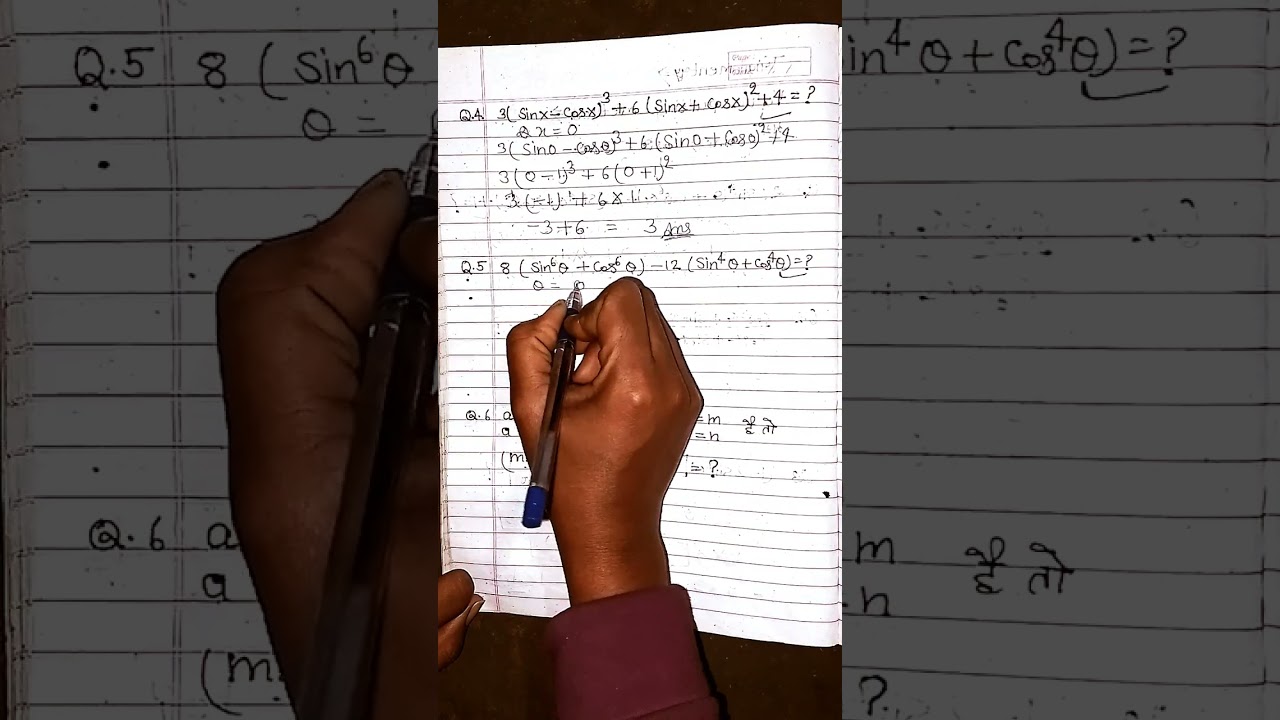 Q.4 3(Sinx-Cosx)³ + 6(Sinx+Cosx)² + 4 = ?
x=0
3(Sin0-Cos0)³ + 6(Sin0+Cos0)² + 4
3(0-1)³ + 6(0+1)²
3(-1) + 6×1
-3+6 = 3 Ans
Q.5 8(Sin⁶θ + Cos⁶θ) - 12(Sin⁴θ + Cos⁴θ) = ?
θ = 0
Q.6 a = m है तो
a = n
(m = ?